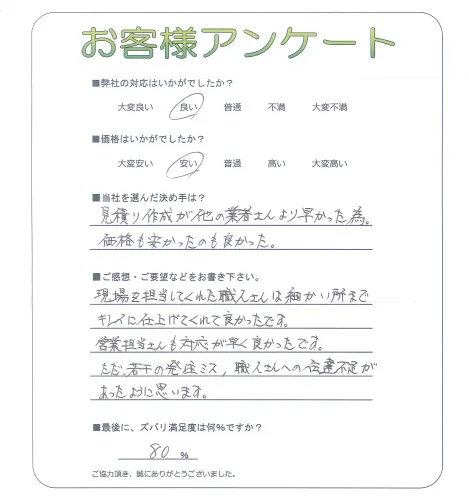 お客様アンケート
■弊社の対応はいかがでしたか？
大変良い 良い 普通 不満 大変不満
■価格はいかがでしたか？
大変安い 安い 普通 高い 大変高い
■当社を選んだ決め手は？
見積り作成が他の業者さんより早かった為。
価格も安かったのも良かった。
■ご感想・ご要望などをお書き下さい。
現場を担当してくれた職人さんは細かい所まで
キレイに仕上げてくれて良かったです。
営業担当さんも対応が早く良かったです。
ただ、若干の発注ミス、職人さんへの伝達不足が
あったように思います。
■最後に、ズバリ満足度は何％ですか？
80 ％
ご協力頂き、誠にありがとうございました。